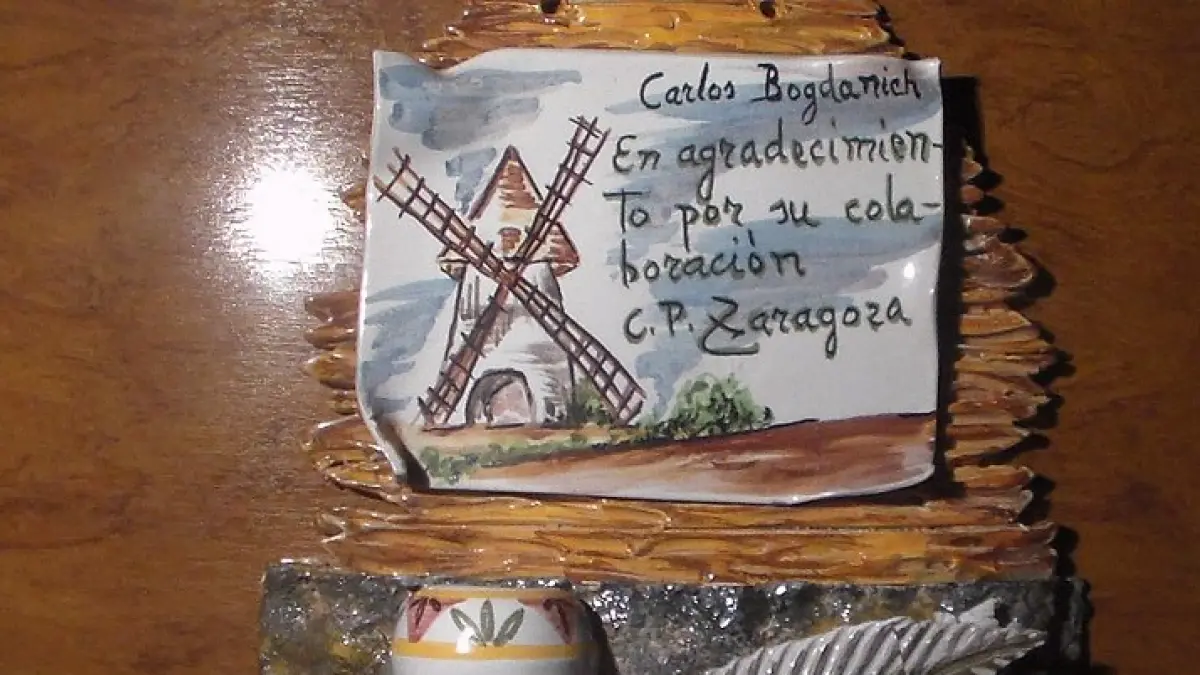 Carlos Bogdanich
En agradecimien-
to por su cola-
boración
C.P. Zaragoza